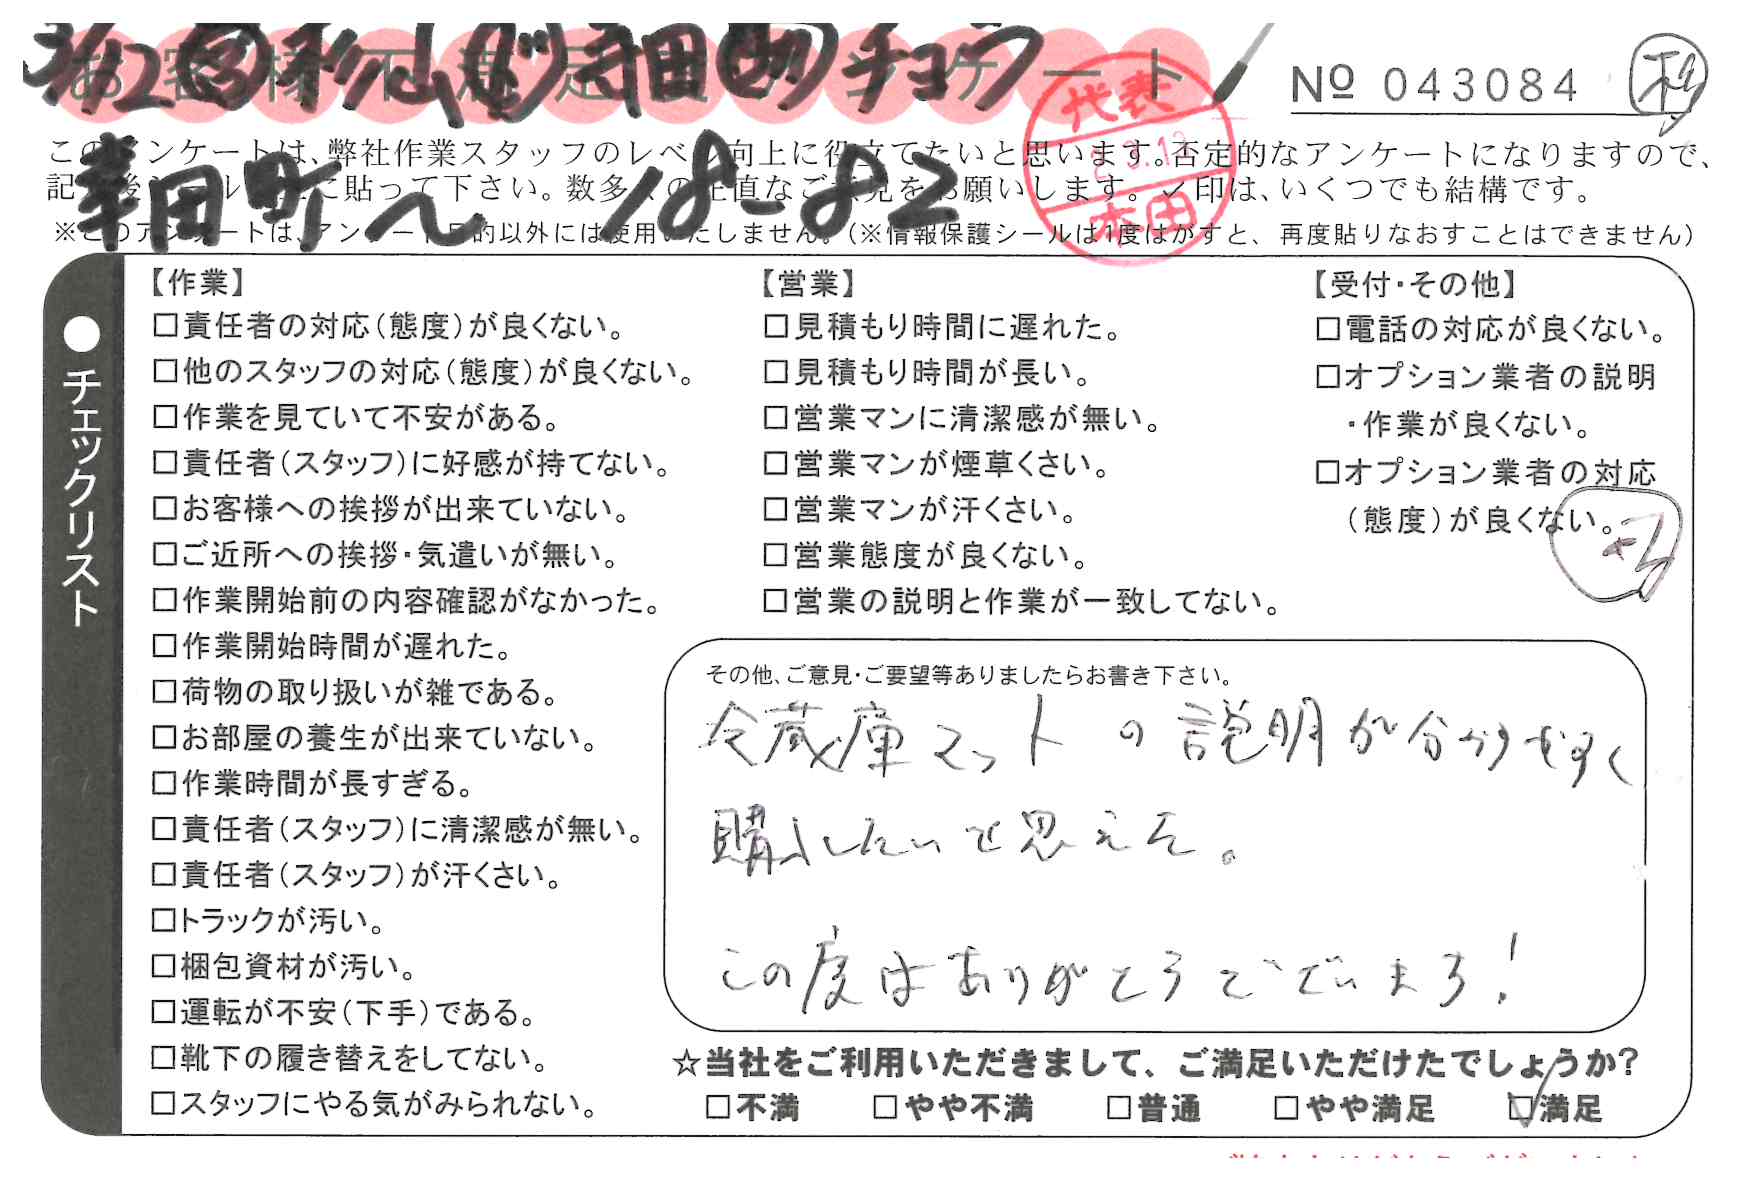 お客様不満足度アンケート
3/12
チョウ
№ 043084
幸田町へ 18-82
代表
本田
このアンケートは、弊社作業スタッフのレベル向上に役立てたいと思います。否定的なアンケートになりますので、
記入後シールを上に貼って下さい。数多くの正直なご意見をお願いします。✓印は、いくつでも結構です。
※このアンケートは、アンケート目的以外には使用いたしません。(※情報保護シールは1度はがすと、再度貼りなおすことはできません)
●チェックリスト
【作業】
□責任者の対応(態度)が良くない。
□他のスタッフの対応(態度)が良くない。
□作業を見ていて不安がある。
□責任者(スタッフ)に好感が持てない。
□お客様への挨拶が出来ていない。
□ご近所への挨拶・気遣いが無い。
□作業開始前の内容確認がなかった。
□作業開始時間が遅れた。
□荷物の取り扱いが雑である。
□お部屋の養生が出来ていない。
□作業時間が長すぎる。
□責任者(スタッフ)に清潔感が無い。
□責任者(スタッフ)が汗くさい。
□トラックが汚い。
□梱包資材が汚い。
□運転が不安(下手)である。
□靴下の履き替えをしてない。
□スタッフにやる気がみられない。
【営業】
□見積もり時間に遅れた。
□見積もり時間が長い。
□営業マンに清潔感が無い。
□営業マンが煙草くさい。
□営業マンが汗くさい。
□営業態度が良くない。
□営業の説明と作業が一致してない。
【受付・その他】
□電話の対応が良くない。
□オプション業者の説明
・作業が良くない。
□オプション業者の対応
(態度)が良くない。
その他、ご意見・ご要望等ありましたらお書き下さい。
冷蔵庫マットの説明が分かりやすく
購入したいと思えた。
この度はありがとうございます!
☆当社をご利用いただきまして、ご満足いただけたでしょうか?
□不満 □やや不満 □普通 □やや満足 ☑満足